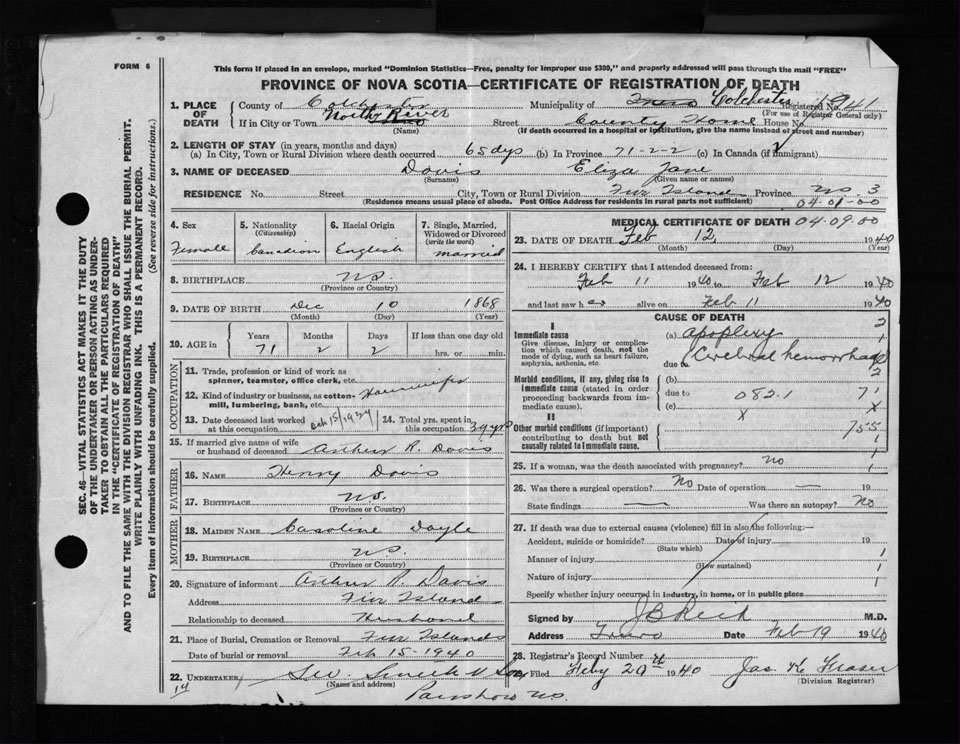 FORM 6
This form if placed in an envelope, marked "Dominion Statistics—Free, penalty for improper use $300," and properly addressed will pass through the mail "FREE"
PROVINCE OF NOVA SCOTIA—CERTIFICATE OF REGISTRATION OF DEATH
1. PLACE OF DEATH
County of Colchester Municipality of Colchester Registered No. 1941
(For use of Registrar General only)
If in City or Town North River Street County Home House No.
(Name) (If death occurred in a hospital or institution, give the name instead of street and number)
2. LENGTH OF STAY (in years, months and days)
(a) In City, Town or Rural Division where death occurred 65 dys (b) In Province 71-2-2 (c) In Canada (if immigrant)
3. NAME OF DECEASED Davis Eliza Jane
(Surname) (Given name or names)
RESIDENCE No. Street City, Town or Rural Division Island Province N.S. 3
(Residence means usual place of abode. Post Office Address for residents in rural parts not sufficient) 04-01-00
4. Sex
Female
5. Nationality
(Citizenship)
Canadian
6. Racial Origin
English
7. Single, Married, Widowed or Divorced
(write the word)
Married
8. BIRTHPLACE N.S.
(Province or Country)
9. DATE OF BIRTH Dec 10 1868
(Month) (Day) (Year)
10. AGE in
Years Months Days If less than one day old
71 2 2 hrs. or min.
OCCUPATION
11. Trade, profession or kind of work as spinner, teamster, office clerk, etc.
12. Kind of industry or business, as cotton-mill, lumbering, bank, etc. Housewife
13. Date deceased last worked at this occupation
14. Total yrs. spent in this occupation 39 yrs
15. If married give name of wife or husband of deceased Arthur R. Davis
FATHER
16. NAME Henry Davis
17. BIRTHPLACE N.S.
(Province or Country)
MOTHER
18. MAIDEN NAME Caroline Doyle
19. BIRTHPLACE N.S.
(Province or Country)
20. Signature of informant Arthur R. Davis
Address Island
Relationship to deceased Husband
21. Place of Burial, Cremation or Removal Islands
Date of burial or removal Feb 15-1940
22. UNDERTAKER
(Name and address)
14
N.S.
MEDICAL CERTIFICATE OF DEATH 04.09.00
23. DATE OF DEATH Feb 12, 1940
(Month) (Day) (Year)
24. I HEREBY CERTIFY that I attended deceased from:
Feb 11 1940 to Feb 12 1940
and last saw h er alive on Feb 11 1940
CAUSE OF DEATH
I
Immediate cause
Give disease, injury or complication which caused death, not the mode of dying, such as heart failure, asphyxia, asthenia, etc.
(a) Apoplexy
due to Cerebral hemorrhage
Morbid conditions, if any, giving rise to immediate cause (stated in order proceeding backwards from immediate cause).
(b)
due to 082.1 71
(c) x x
II
Other morbid conditions (if important) contributing to death but not causally related to immediate cause.
25. If a woman, was the death associated with pregnancy? no
26. Was there a surgical operation? No Date of operation — 19
State findings — Was there an autopsy? No
27. If death was due to external causes (violence) fill in also the following:—
Accident, suicide or homicide? Date of injury 19
(State which)
Manner of injury
(How sustained)
Nature of injury
Specify whether injury occurred in industry, in home, or in public place
Signed by J B Reid M.D.
Address Truro Date Feb 19 1940
28. Registrar's Record Number
Filed Feby 20th 1940 Jas Fraser
(Division Registrar)
SEC. 46—VITAL STATISTICS ACT MAKES IT THE DUTY
OF THE UNDERTAKER OR PERSON ACTING AS UNDER-
TAKER TO OBTAIN ALL THE PARTICULARS REQUIRED
IN THE "CERTIFICATE OF REGISTRATION OF DEATH"
AND TO FILE THE SAME WITH THE DIVISION REGISTRAR WHO SHALL ISSUE THE BURIAL PERMIT.
WRITE PLAINLY WITH UNFADING INK. THIS IS A PERMANENT RECORD.
Every item of information should be carefully supplied. (See reverse side for instructions.)